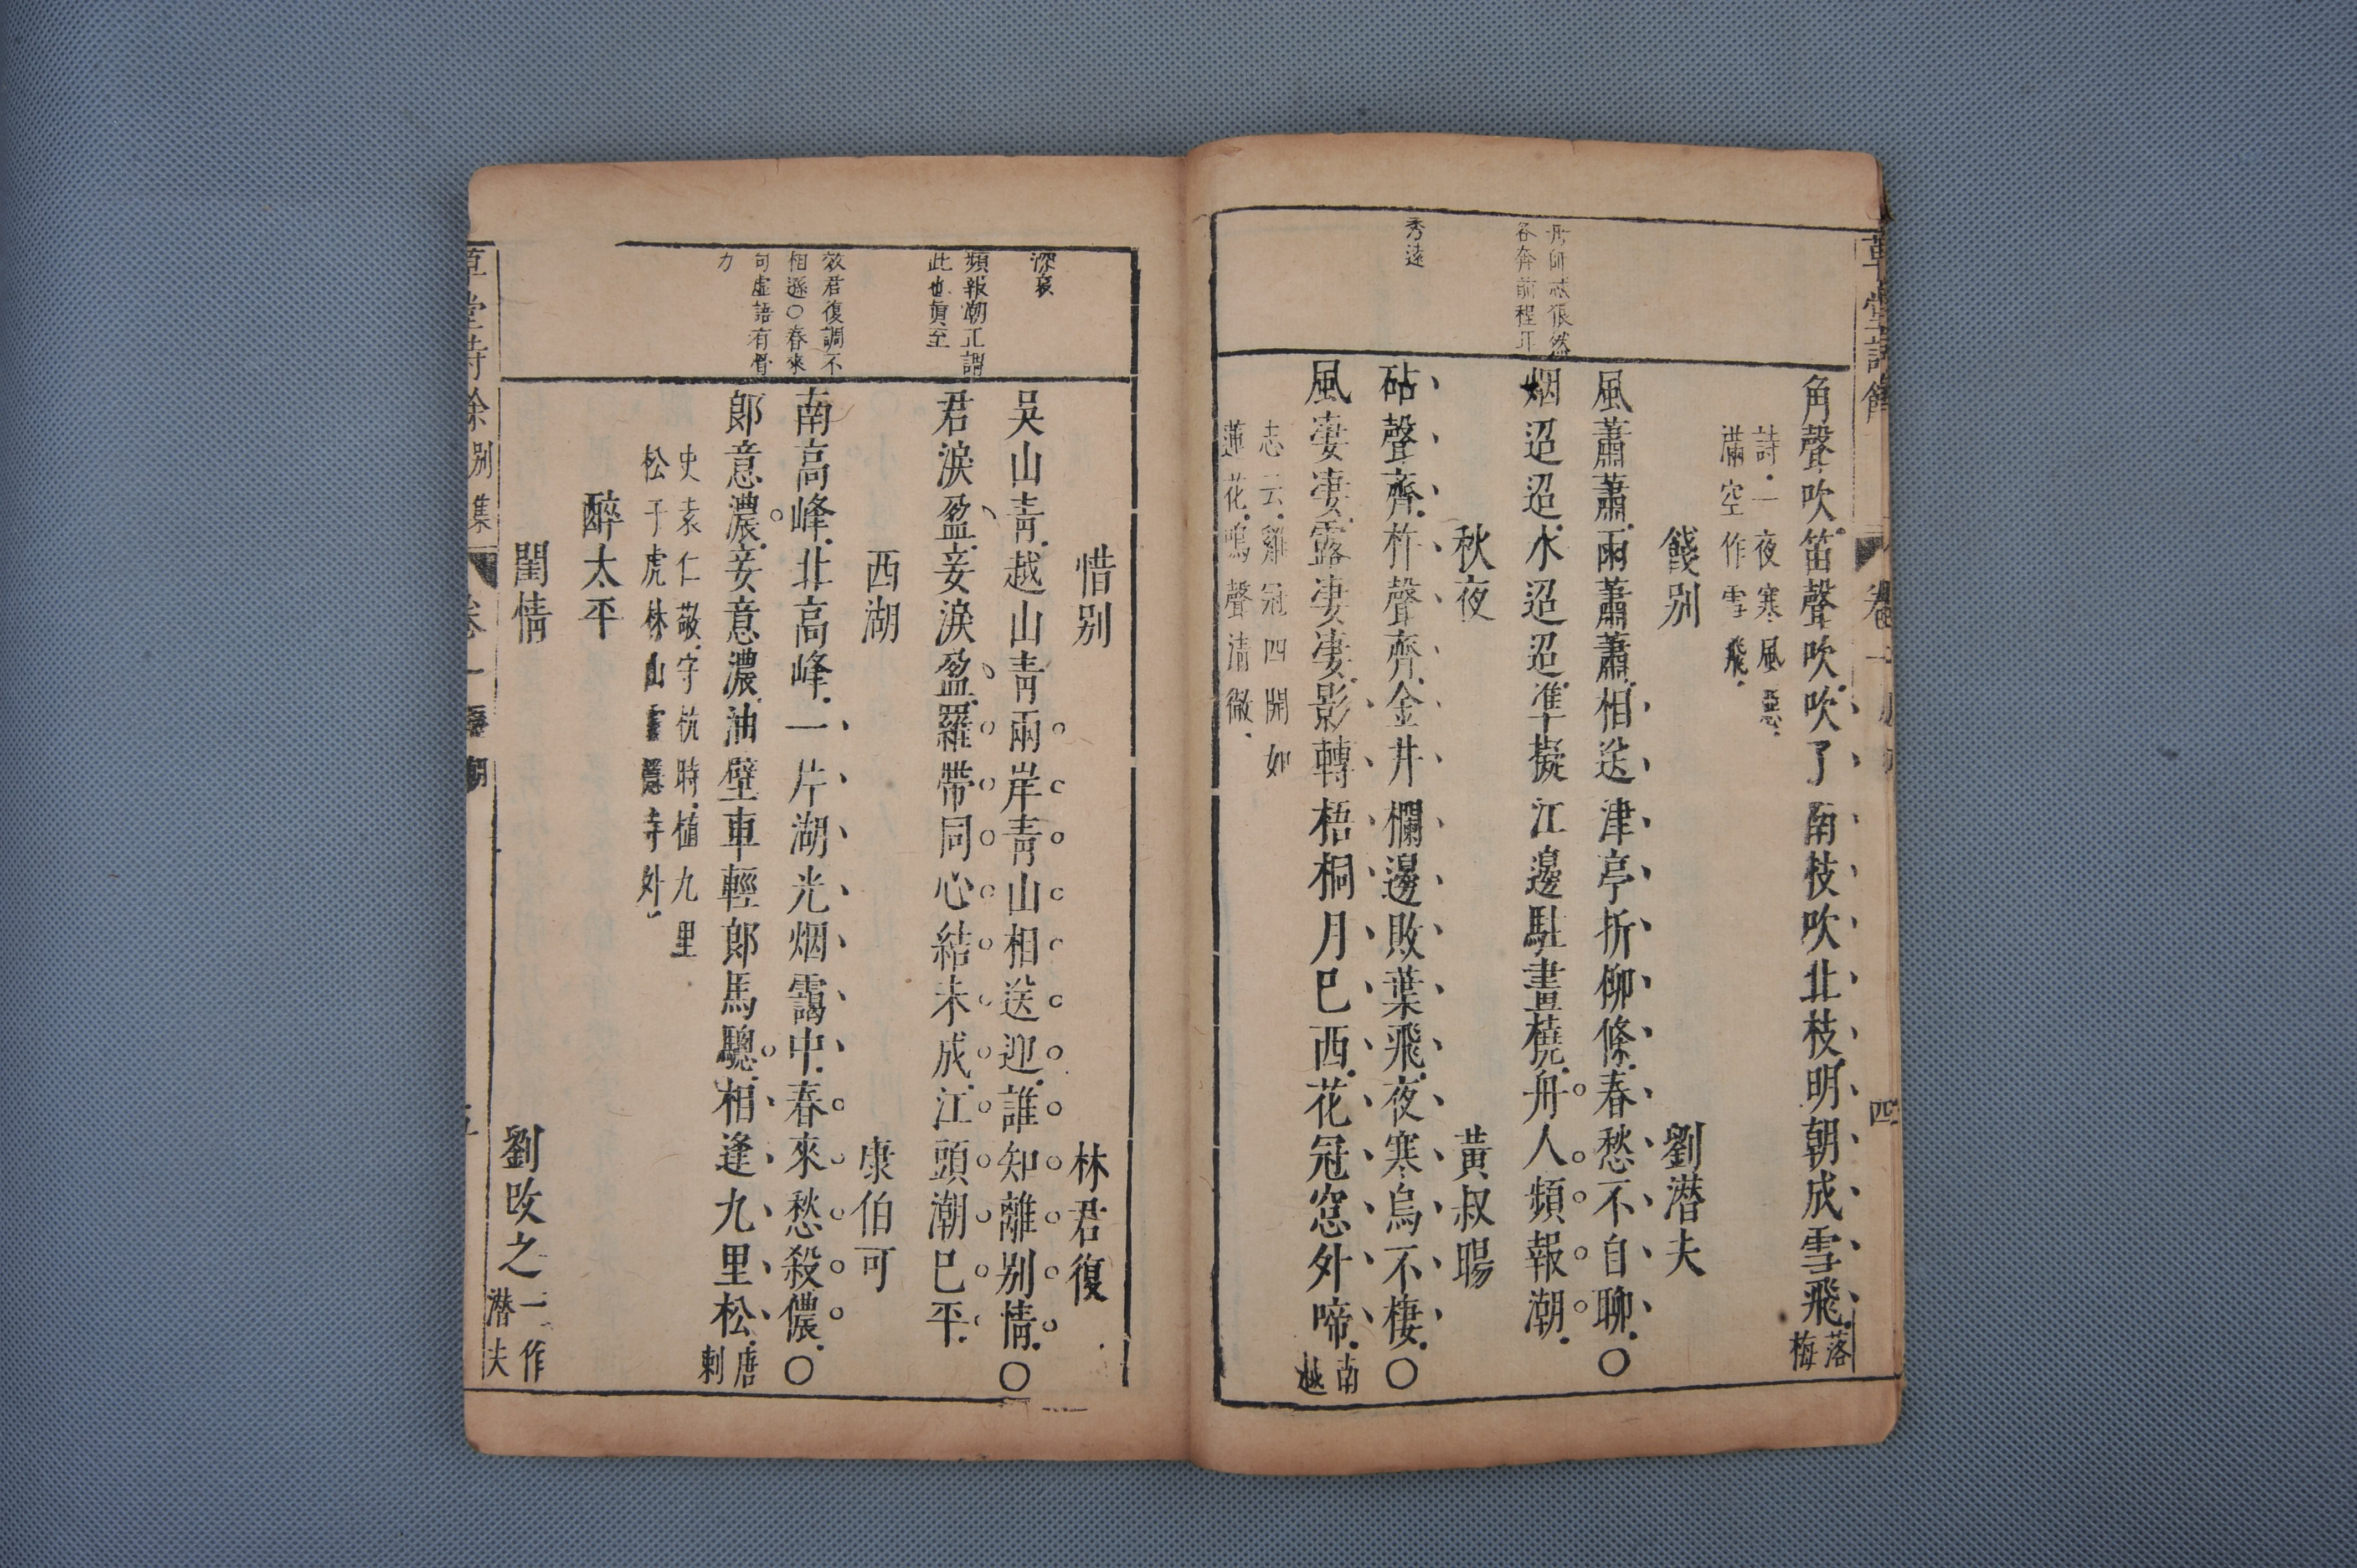 角聲吹笛聲吹吹了南枝吹北枝明朝成雪飛落梅
詩一夜寒風惡
滿空作雪飛
餞別 劉潜夫
風蕭蕭雨蕭蕭相送津亭折柳條春愁不自聊〇
烟迢迢水迢迢準擬江邊駐畫橈舟人頻報潮
秋夜 黃叔暘
砧聲齊杵聲齊金井欄邊敗葉飛夜寒烏不棲〇
風凄凄露凄凄影轉梧桐月巳西花冠窓外啼南越
志云雞冠四開如
蓮花鳴聲清徹
舟師忒狠然
各奔前程耳
秀遠
草堂詩餘
卷一
四
惜别 林君復
吴山靑越山靑兩岸靑山相送迎誰知離别情〇
君淚盈妾淚盈羅帶同心結未成江頭潮巳平
西湖 康伯可
南高峰北高峰一片湖光烟靄中春來愁殺儂〇
郞意濃妾意濃油壁車輕郞馬驄相逢九里松唐刺
史袁仁敬守杭時植九里
松于虎林山靈隱寺外
醉太平
閨情 劉攺之一作潜夫
深衷
頻報潮工謂
此也眞至
效君復調不
相遜〇春來
句虚語有骨
力
草堂詩余别集
卷一
五